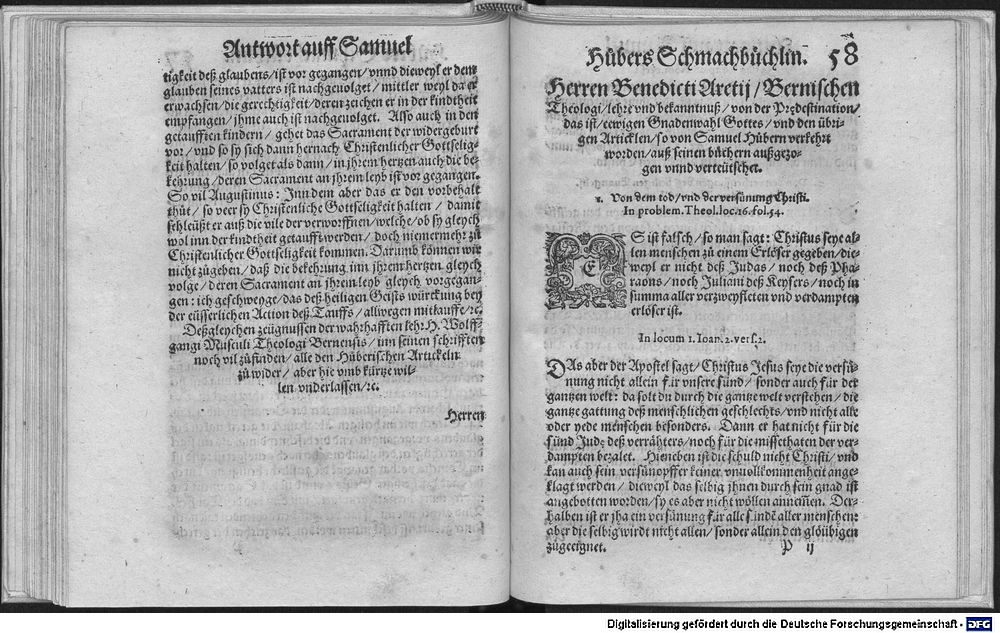 Antwort auff Samuel
tigkeit deß glaubens / ist vor gegangen / vnnd dieweyl er dem
glauben seines vatters ist nachgeuolget / mittler weyl da er
erwachsen / die gerechtigkeit / deren zeichen er in der kindtheit
empfangen / jhme auch ist nachgeuolget. Also auch in den
getaufften kindern / gehet das Sacrament der widergeburt
vor / vnd so sy sich dann hernach Christenlicher Gottselig-
keit halten / so volget als dann / in jhrem hertzen auch die be-
kehrung / deren Sacrament an jhrem leyb ist vor gegangen.
So vil Augustinus: Inn dem aber das er den vorbehalt
thůt / so veer sy Christenliche Gottseligkeit halten / damit
schleüßt er auß die vile der verworffnen / welche / ob sy gleych
wol inn der kindtheit getaufft werden / doch niemermehr zů
Christenlicher Gottseligkeit kommen. Darumb können wir
nicht zůgeben / daß die bekehrung inn jhrem hertzen gleych
volge / deren Sacrament an jhrem leyb gleych vorgegan-
gen: ich geschweyge / das deß heiligen Geists würckung bey
der eüsserlichen Action deß Tauffs / allwegen mitlauffe / ꝛc.
Deßgleychen zeügnussen der wahrhafften lehr H. Wolff-
gangi Musculi Theologi Bernensis / inn seinen schrifften
noch vil zůfinden / alle den Hüberischen Artickeln
zůwider / aber hie vmb kürtze wil-
len vnderlassen / ꝛc.
Herren
Hübers Schmachbüchlin. 58
Herren Benedicti Aretij / Bernischen
Theologi / lehr vnd bekanntnuß / von der Prædestination /
das ist / ewigen Gnadenwahl Gottes / vnd den übri-
gen Articklen / so von Samuel Hübern verkehrt
worden / auß seinen bůchern außgezo-
gen vnnd verteütschet.
1. Von dem tod / vnd der versünung Christi.
In problem. Theol. loc. 16. fol. 54.
ES ist falsch / so man sagt: Christus seye al-
len menschen zů einem Erlöser gegeben / die-
weyl er nicht deß Judas / noch deß Pha-
raons / noch Juliani deß Keysers / noch in
summa aller verzweyfleten vnd verdampten
erlöser ist.
In locum 1. Ioan. 2. vers. 2.
DAs aber der Apostel sagt / Christus Jesus seye die versü-
nung nicht allein für vnsere sünd / sonder auch für der
gantzen welt: da solt du durch die gantze welt verstehen / die
gantze gattung deß menschlichen geschlechts / vnd nicht alle
oder yede menschen besonders. Dann er hat nicht für die
sünd Judę deß verrähters / noch für die missethaten der ver-
dampten bezalet. Hieneben ist die schuld nicht Christi / vnd
kan auch sein versünopffer keiner vnuollkommenheit ange-
klagt werden / dieweyl das selbig jhnen durch sein gnad ist
angebotten worden / sy es aber nicht wöllen annemē. Der-
halben ist er jha ein versünung für alle sündē aller menschen:
aber die selbig wirdt nicht allen / sonder allein den glöübigen
zůgeeignet. P ij
Digitalisierung gefördert durch die Deutsche Forschungsgemeinschaft - DFG